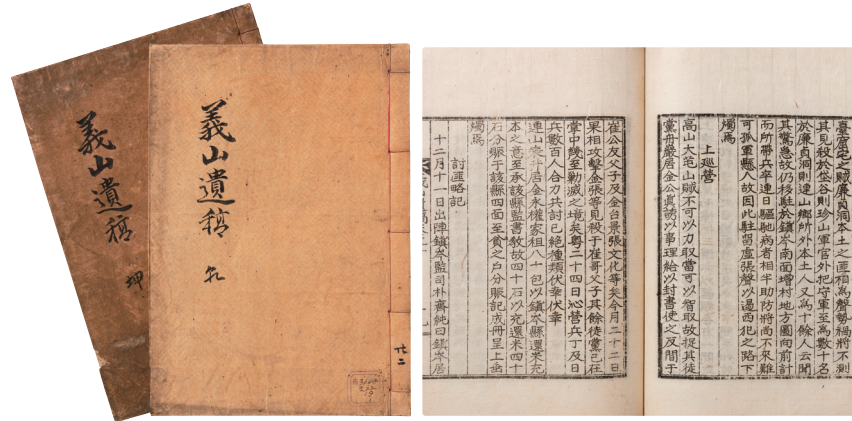 義山遺稿
坤
義山遺稿
乹
共二
臺齋屯之賊廉貞洞本土之匪相爲聲勢禍將不測
其見殺於垈谷則珍山軍官外把守軍至爲數十名
於廉貞洞則連山鄕所外本土人又爲十餘人云聞
其驚急故仍移駐於鎭岑南面增村地方圖向前計
而所帶兵卒連日驅馳病者相半助防將尙不來難
可孤軍縣人故因此駐留虛張聲以遏西犯之路下
燭焉
上廵營
高山大芚山賊不可以力取當可以智取故捉其徒
黨舟巖居金公眞誘以事理給以封書使之反間于
崔公友父子及金台景張文化等矣今月二十二日
果相攻擊金張等見殺于崔哥父子其餘徒黨已在
掌中幾至勦滅之境矣粤二十四日沁營兵丁及日
兵數百人合力共討已絶種類伏幸伏幸
連山居金永權家租八十包以鎭岑縣還米充
本之意至承該縣監書敎故四十石以充還米四十
石分賑于該縣四面至貧之戶分賑記成冊呈上垂
燭焉
討匪略記
十二月十一日出陣鎭岑監司朴齊純曰鎭岑居